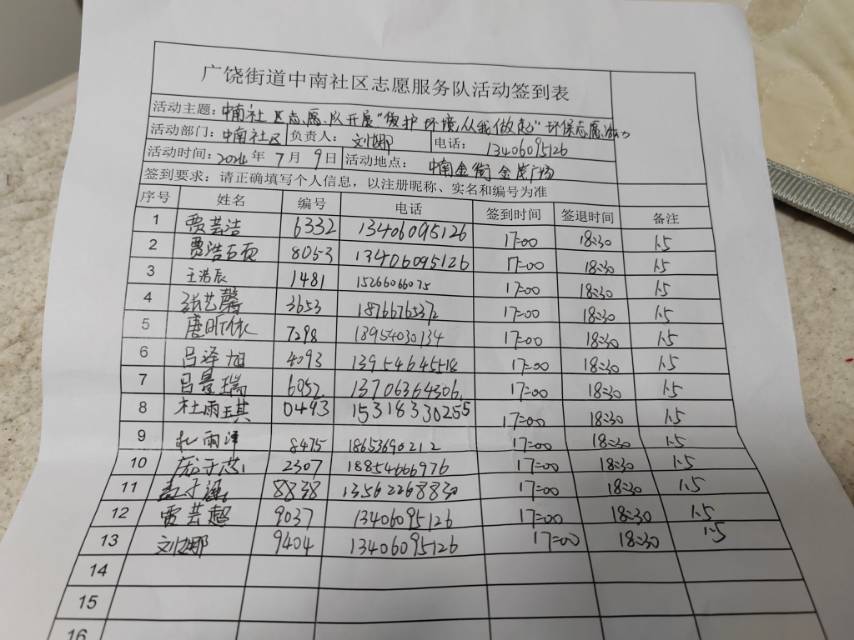 广饶街道中南社区志愿服务队活动签到表
活动主题：中南社区志愿队开展"保护环境,从我做起"环保志愿活动
活动部门：中南社区 负责人：刘娜 电话：13406095126
活动时间：2024年7月9日 活动地点：中南金街金岸广场
签到要求：请正确填写个人信息，以注册昵称、实名和编号为准
序号 姓名 编号 电话 签到时间 签退时间 备注
1 贾芸洁 6332 13406095126 17:00 18:30 1.5
2 贾浩 8053 13406095126 17:00 18:30 1.5
3 王浩辰 1481 1526606075 17:00 18:30 1.5
4 张艺馨 3653 18766765372 17:00 18:30 1.5
5 唐昕依 7298 18954030134 17:00 18:30 1.5
6 吕泽旭 4093 13954645518 17:00 18:30 1.5
7 吕景瑞 6952 13706364306 17:00 18:30 1.5
8 杜雨琪 0493 15318330255 17:00 18:30 1.5
9 杜雨泽 8475 18653690212 17:00 18:30 1.5
10 2307 18854666976 17:00 18:30 1.5
11 孟子涵 8838 13562268830 17:00 18:30 1.5
12 贾芸超 9037 13406095126 17:00 18:30 1.5
13 刘娜 9404 13406095126 17:00 18:30 1.5
14
15
16